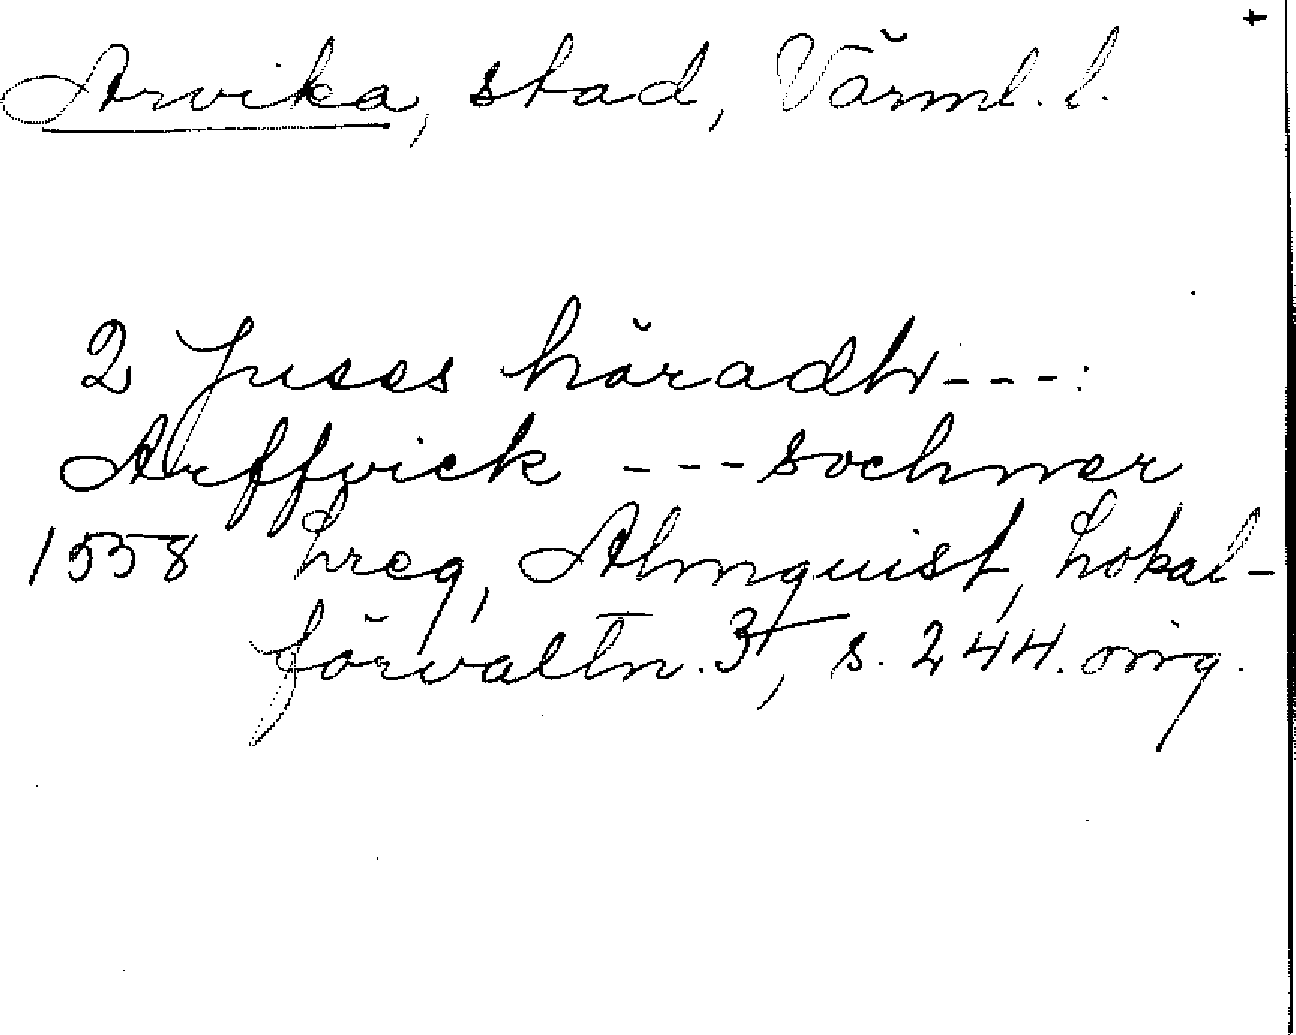 Arvika, stad, Värml. l.
2 Juses häradh ---:
Arffvick --- sochner
1558 hreg, Almquist, Lokal-
förvaltn. 3, s. 244. orig.